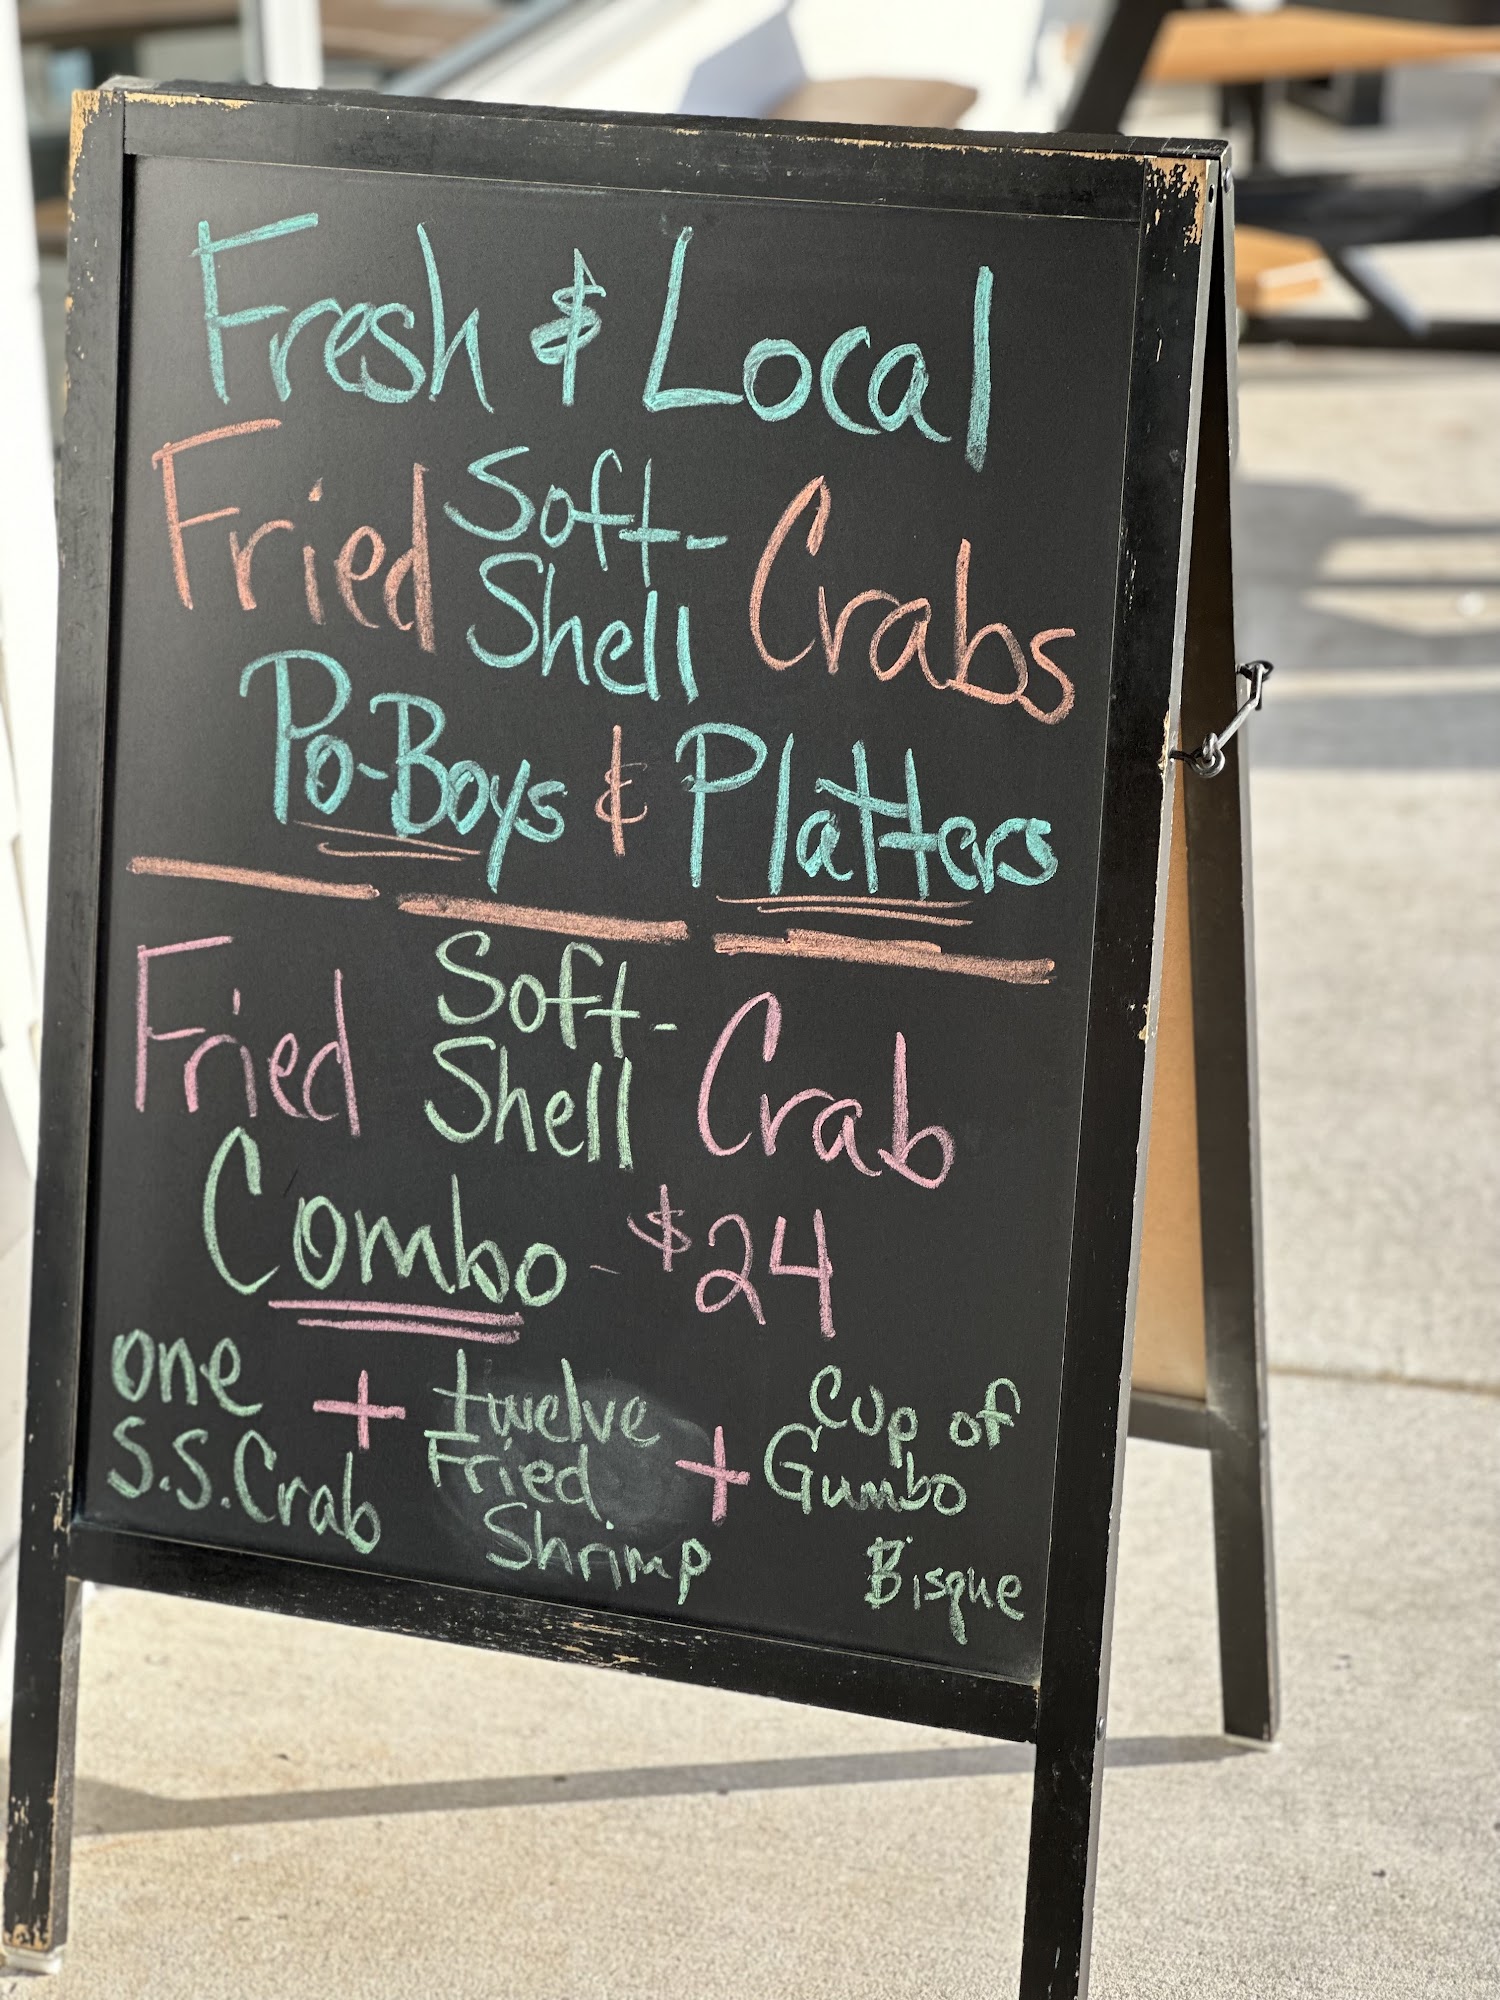 Fresh & Local
Fried Soft-Shell Crabs
Po-Boys & Platters
Fried Soft-Shell Crab
Combo - $24
one S.S. Crab + twelve Fried Shrimp + Cup of Gumbo Bisque